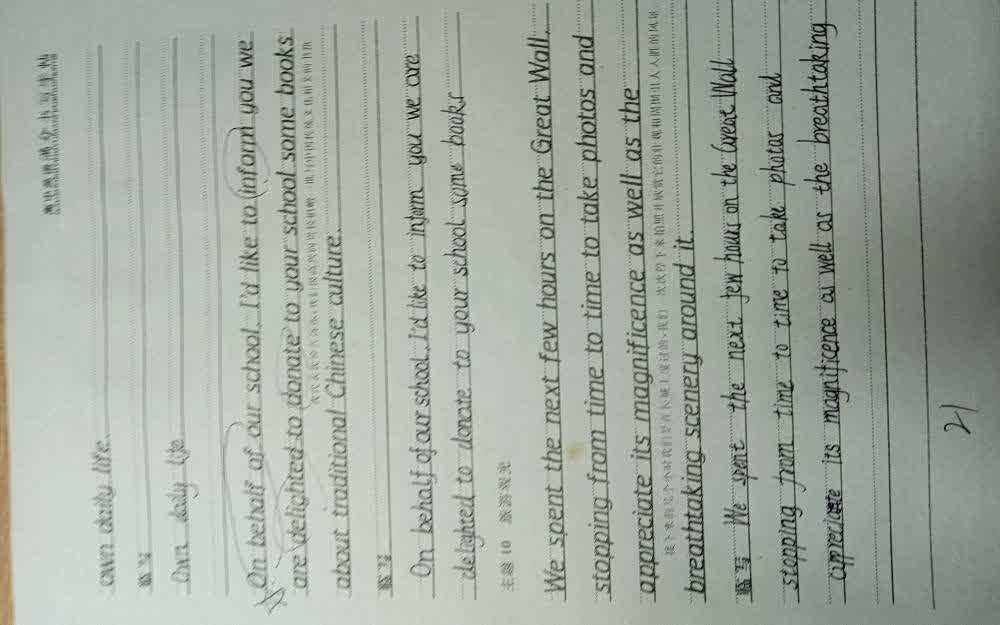 高中英语满分书写字帖
own daily life.
临写
own daily life
On behalf of our school, I'd like to inform you we
are delighted to donate to your school some books
about traditional Chinese culture.
临写
On behalf of our school, I'd like to inform you we care
delighted to donate to your school some books
主题 10 旅游观光
We spent the next few hours on the Great Wall,
stopping from time to time to take photos and
appreciate its magnificence as well as the
breathtaking scenery around it.
临写 We spent the next few hours on the Great Wall
stopping from time to time to take photos and
appreciate its magnificence as well as the breathtaking
21